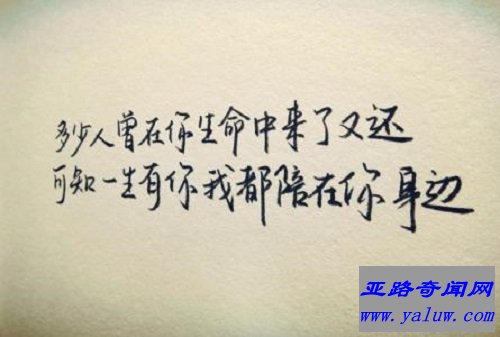 多少人曾在你生命中来了又还
可知一生有你我都陪在你身边
亚路奇闻网
www.yaluw.com